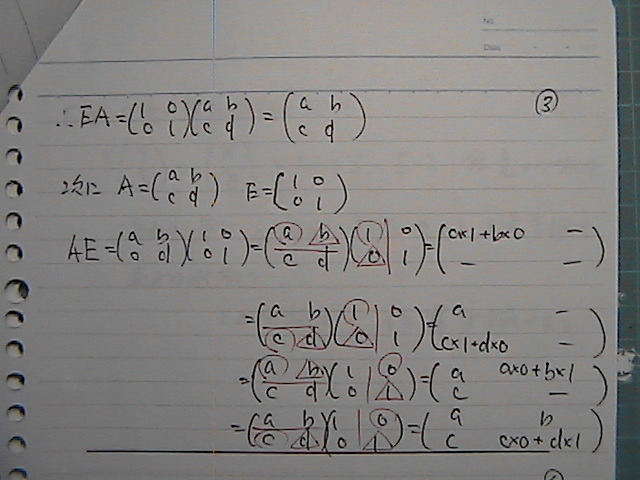 No.
Date
③
∴EA=(1 0 0 1)(a b c d)=(a b c d)
次に A=(a b c d) E=(1 0 0 1)
AE=(a b 0 d)(1 0 0 1)=(a b c d)(1 0 | 0 1)=(a×1+b×0 − − −)
=(a b c d)(1 0 | 0 1)=(a − c×1+d×0 −)
=(a b c d)(1 0 | 0 1)=(a a×0+b×1 c −)
=(a b c d)(1 0 | 0 1)=(a b c c×0+d×1)